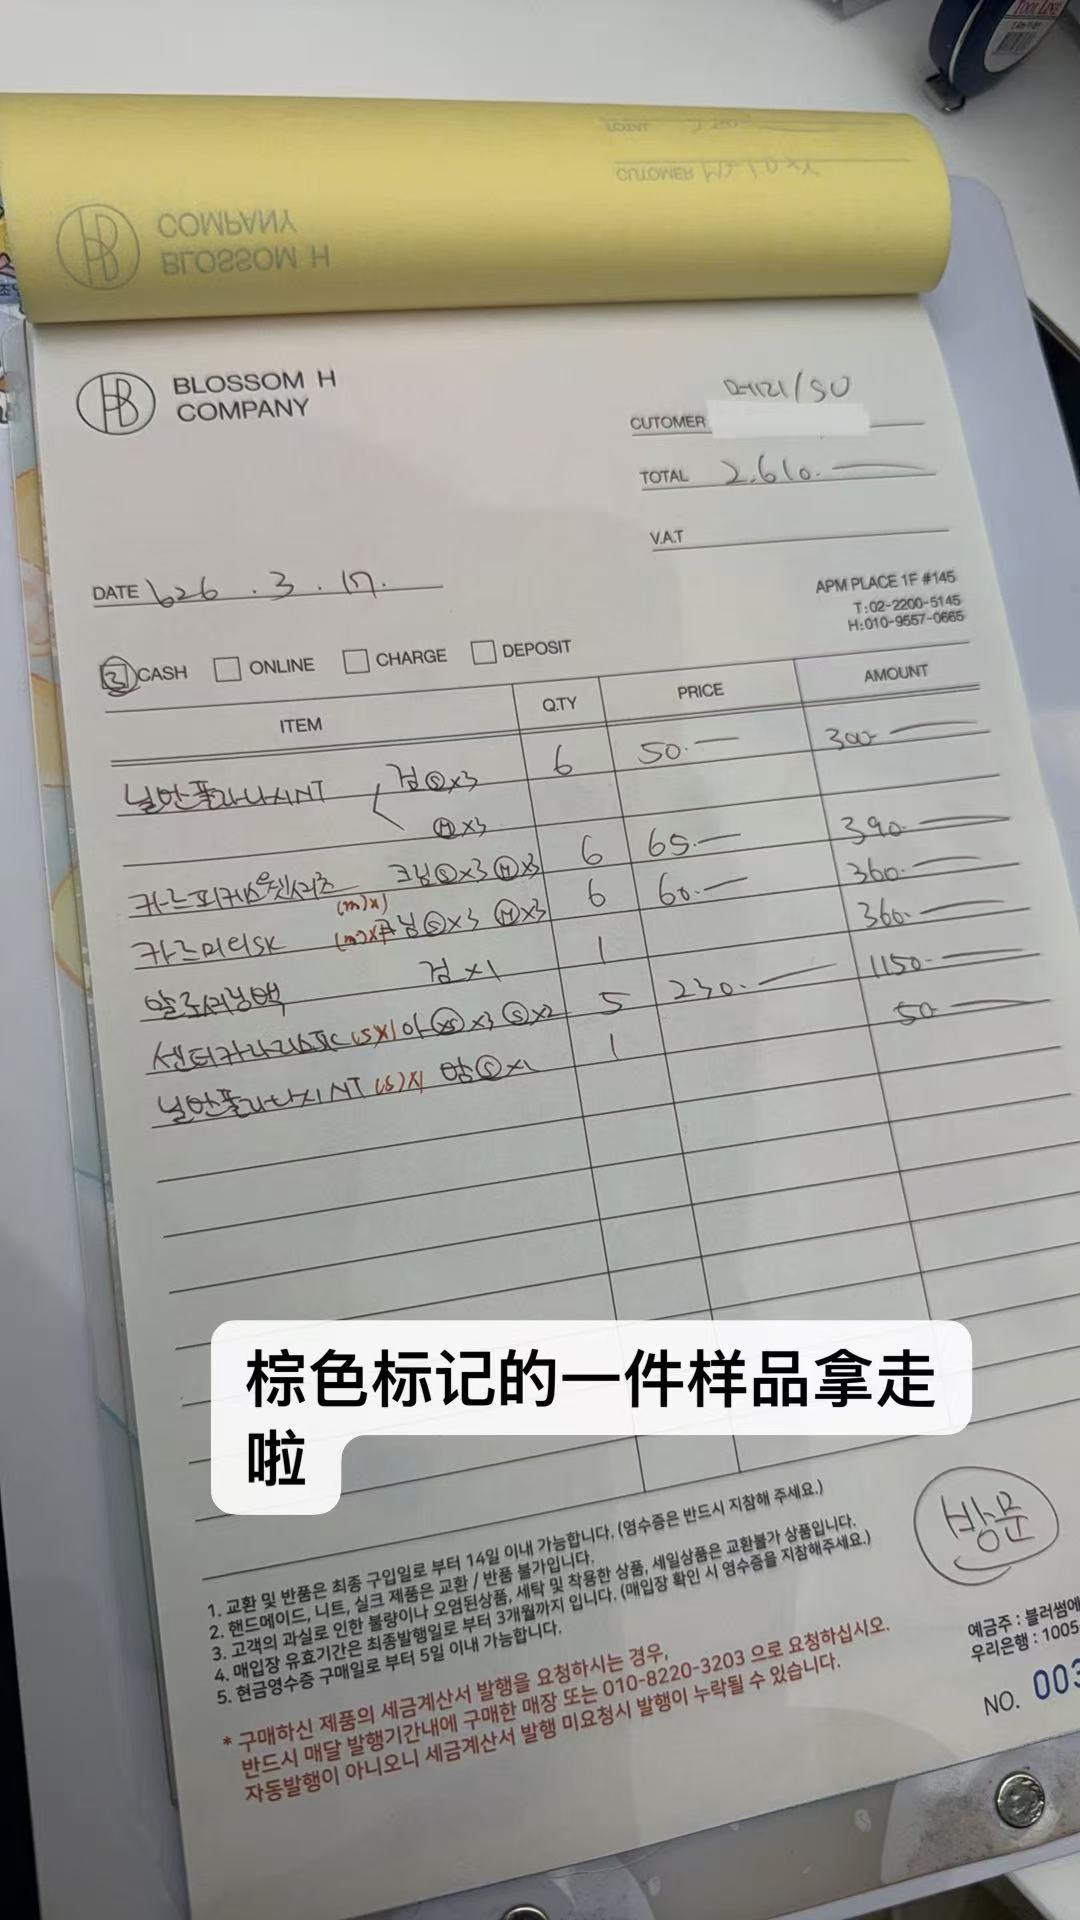 BLOSSOM H
COMPANY
CUTOMER
TOTAL 2.610.
V.A.T
DATE 26.3.17.
APM PLACE 1F #145
T:02-2200-5145
H:010-9557-0665
CASH ONLINE CHARGE DEPOSIT
ITEM Q.TY PRICE AMOUNT
닐안플라나시NT 검Ⓢ×3 6 50.- 300-
Ⓜ×3
크님Ⓢ×3 Ⓜ×3 6 65.- 390.-
(m)x1
Ⓢ×3 Ⓜ×3 6 60.- 360.-
검×1 1 360.-
(s)x1 아ⓍⓈ×3 Ⓢ×2 5 230.- 1150.-
닐안플라나시NT (s)x1 Ⓢ×1 1 50-
棕色标记的一件样品拿走
啦
방문
1. 교환 및 반품은 최종 구입일로 부터 14일 이내 가능합니다. (영수증은 반드시 지참해 주세요.)
2. 핸드메이드, 니트, 실크 제품은 교환 / 반품 불가입니다.
3. 고객의 과실로 인한 불량이나 오염된상품, 세탁 및 착용한 상품, 세일상품은 교환불가 상품입니다.
4. 매입장 유효기간은 최종발행일로 부터 3개월까지 입니다. (매입장 확인 시 영수증을 지참해주세요.)
5. 현금영수증 구매일로 부터 5일 이내 가능합니다.
* 구매하신 제품의 세금계산서 발행을 요청하시는 경우,
반드시 매달 발행기간내에 구매한 매장 또는 010-8220-3203 으로 요청하십시오.
자동발행이 아니오니 세금계산서 발행 미요청시 발행이 누락될 수 있습니다.
예금주 : 블러썸에
우리은행 : 1005
NO. 003